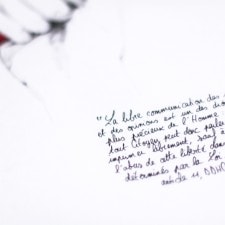 "La libre communication des
et des opinions est un des dro
plus précieux de l'Homme.
tout Citoyen peut donc parler
imprimer librement, sauf à
l'abus de cette liberté dans
déterminés par la Loi
article 11, DDHC